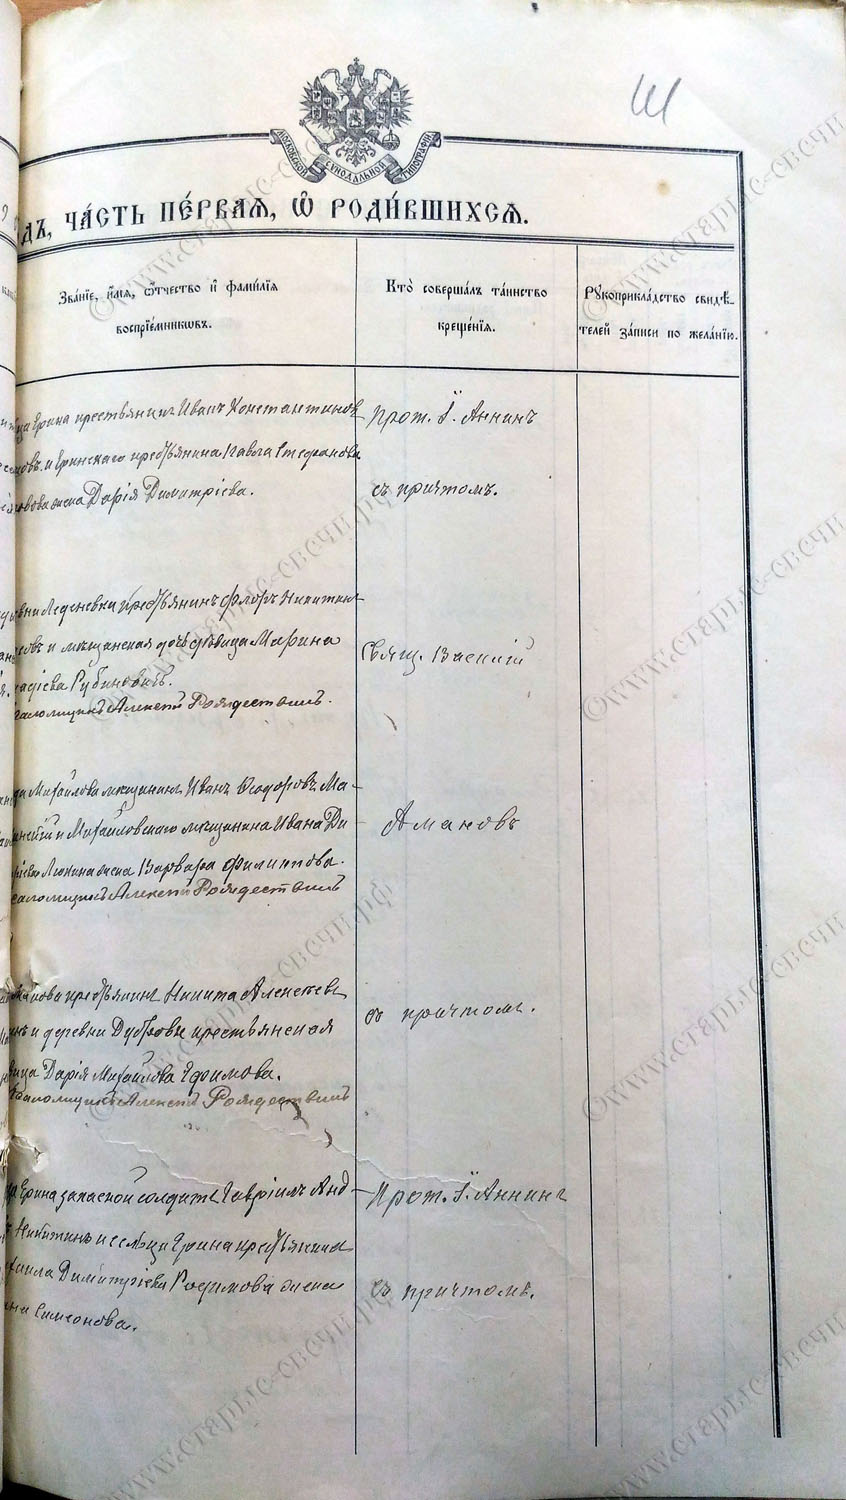 Ш
МОСКОВСКОЙ СѴНОДАЛЬНОЙ ТИПОГРАФІИ
дъ, ча́сть пе́рваѧ, ѡ҆ роди́вшихсѧ.
Зва́нїе, и҆́мѧ, ѻ҆́тчество и҆ фами́лїѧ
воспрїе́мникѡвъ.
Кто̀ соверша́лъ та́инство
креще́нїѧ.
Рꙋкоприкла́дство свидѣ́-
телей за́писи по жела́нїю.
Ерина крестьянинъ Иванъ Константинов-
овъ и Еринскаго крестьянина Павла Стефанова
жена Дарія Димитріева.
Прот. І. Аннинъ
съ причтомъ.
Леденевки крестьянинъ Флоръ Никитин-
ковъ и мѣщанская дочь дѣвица Марина
Рубиновичъ.
Псаломщикъ Алексѣй Рождествинъ.
Свящ. Василій
Михайлова мѣщанинъ Иванъ Ѳеодоровъ Ма-
инскій и Михайловскаго мѣщанина Ивана Ди-
жена Варвара Филиппова.
псаломщикъ Алексѣй Рождествинъ
Амановъ
крестьянинъ Никита Алексѣевъ
инъ и деревни Дубровки крестьянская
вица Дарія Михайлова Ефимова.
Псаломщикъ Алексѣй Рождествинъ
съ причтомъ.
Ерина запасной солдатъ Гавріилъ Анд-
Никитинъ и сельца Ерина крестьянина
аила Димитріева Родимова жена
Симеонова.
Прот. І. Аннинъ
съ причтомъ.
©www.старые-свечи.рф